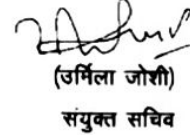 (उर्मिला जोशी)
संयुक्त सचिव